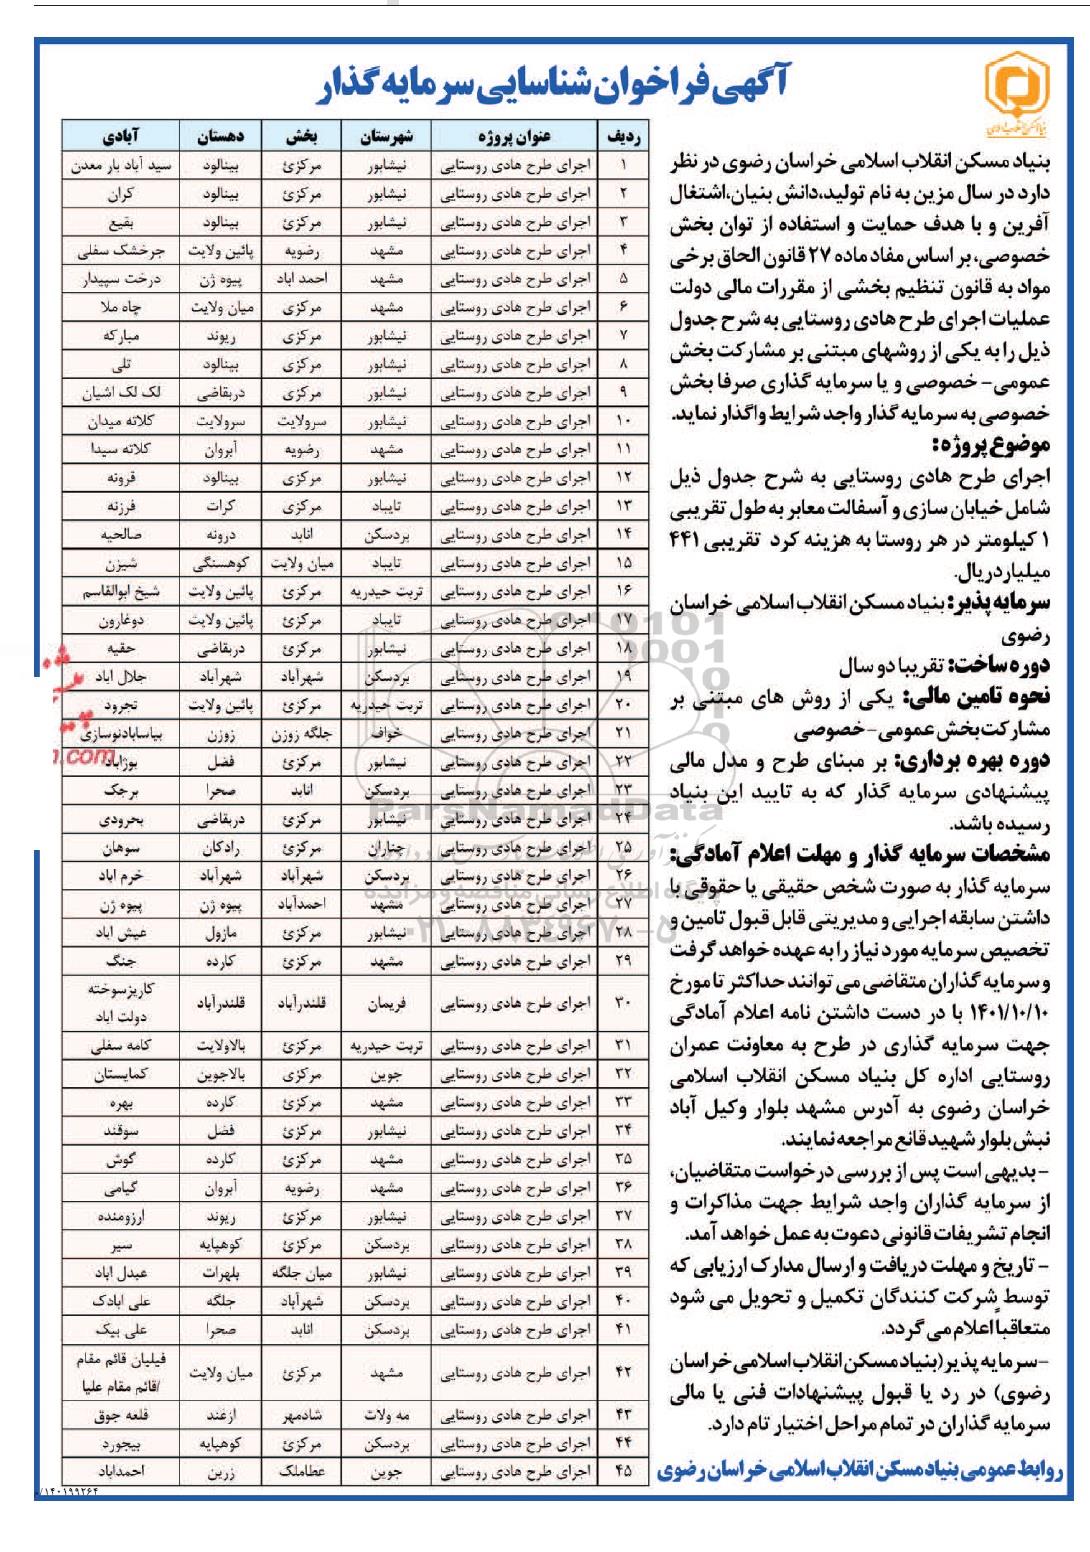 آگهی فراخوان شناسایی سرمایه گذار
بنیاد مسکن انقلاب اسلامی
بنیاد مسکن انقلاب اسلامی خراسان رضوی در نظر
دارد در سال مزین به نام تولید،دانش بنیان،اشتغال
آفرین و با هدف حمایت و استفاده از توان بخش
خصوصی، بر اساس مفاد ماده ۲۷ قانون الحاق برخی
مواد به قانون تنظیم بخشی از مقررات مالی دولت
عملیات اجرای طرح هادی روستایی به شرح جدول
ذیل را به یکی از روشهای مبتنی بر مشارکت بخش
عمومی- خصوصی و یا سرمایه گذاری صرفا بخش
خصوصی به سرمایه گذار واجد شرایط واگذار نماید.
موضوع پروژه:
اجرای طرح هادی روستایی به شرح جدول ذیل
شامل خیابان سازی و آسفالت معابر به طول تقریبی
۱ کیلومتر در هر روستا به هزینه کرد تقریبی ۴۴۱
میلیارد ریال.
سرمایه پذیر: بنیاد مسکن انقلاب اسلامی خراسان
رضوی
دوره ساخت: تقریبا دو سال
نحوه تامین مالی: یکی از روش های مبتنی بر
مشارکت بخش عمومی-خصوصی
دوره بهره برداری: بر مبنای طرح و مدل مالی
پیشنهادی سرمایه گذار که به تایید این بنیاد
رسیده باشد.
مشخصات سرمایه گذار و مهلت اعلام آمادگی:
سرمایه گذار به صورت شخص حقیقی یا حقوقی با
داشتن سابقه اجرایی و مدیریتی قابل قبول تامین و
تخصیص سرمایه مورد نیاز را به عهده خواهد گرفت
و سرمایه گذاران متقاضی می توانند حداکثر تا مورخ
۱۴۰۱/۱۰/۱۰ با در دست داشتن نامه اعلام آمادگی
جهت سرمایه گذاری در طرح به معاونت عمران
روستایی اداره کل بنیاد مسکن انقلاب اسلامی
خراسان رضوی به آدرس مشهد بلوار وکیل آباد
نبش بلوار شهید قانع مراجعه نمایند.
-بدیهی است پس از بررسی درخواست متقاضیان،
از سرمایه گذاران واجد شرایط جهت مذاکرات و
انجام تشریفات قانونی دعوت به عمل خواهد آمد.
- تاریخ و مهلت دریافت و ارسال مدارک ارزیابی که
توسط شرکت کنندگان تکمیل و تحویل می شود
متعاقباً اعلام می گردد.
-سرمایه پذیر(بنیاد مسکن انقلاب اسلامی خراسان
رضوی) در رد یا قبول پیشنهادات فنی یا مالی
سرمایه گذاران در تمام مراحل اختیار تام دارد.
روابط عمومی بنیاد مسکن انقلاب اسلامی خراسان رضوی
ردیف عنوان پروژه شهرستان بخش دهستان آبادی
۱ اجرای طرح هادی روستایی نیشابور مرکزئ بینالود سید آباد بار معدن
۲ اجرای طرح هادی روستایی نیشابور مرکزئ بینالود کران
۳ اجرای طرح هادی روستایی نیشابور مرکزئ بینالود بقیع
۴ اجرای طرح هادی روستایی مشهد رضویه پائین ولایت جرخشک سفلی
۵ اجرای طرح هادی روستایی مشهد احمد اباد پیوه ژن درخت سپیدار
۶ اجرای طرح هادی روستایی مشهد مرکزی میان ولایت چاه ملا
۷ اجرای طرح هادی روستایی نیشابور مرکزی ریوند مبارکه
۸ اجرای طرح هادی روستایی نیشابور مرکزی بینالود تلی
۹ اجرای طرح هادی روستایی نیشابور مرکزی دربقاضی لک لک اشیان
۱۰ اجرای طرح هادی روستایی نیشابور سرولایت سرولایت کلاته میدان
۱۱ اجرای طرح هادی روستایی مشهد رضویه آبروان کلاته سیدا
۱۲ اجرای طرح هادی روستایی نیشابور مرکزی بینالود قرونه
۱۳ اجرای طرح هادی روستایی تایباد مرکزی کرات فرزنه
۱۴ اجرای طرح هادی روستایی بردسکن انابد درونه صالحیه
۱۵ اجرای طرح هادی روستایی تایباد میان ولایت کوهسنگی شیزن
۱۶ اجرای طرح هادی روستایی تربت حیدریه مرکزئ پائین ولایت شیخ ابوالقاسم
۱۷ اجرای طرح هادی روستایی تایباد مرکزئ پائین ولایت دوغارون
۱۸ اجرای طرح هادی روستایی نیشابور مرکزئ دربقاضی حقیه
۱۹ اجرای طرح هادی روستایی بردسکن شهرآباد شهرآباد جلال اباد
۲۰ اجرای طرح هادی روستایی تربت حیدریه مرکزئ پائین ولایت تجرود
۲۱ اجرای طرح هادی روستایی خواف جلگه زوزن زوزن بیاسابادنوسازی
۲۲ اجرای طرح هادی روستایی نیشابور مرکزئ فضل بوژاباد
۲۳ اجرای طرح هادی روستایی بردسکن انابد صحرا برجک
۲۴ اجرای طرح هادی روستایی نیشابور مرکزئ دربقاضی بحرودی
۲۵ اجرای طرح هادی روستایی چناران مرکزئ رادکان سوهان
۲۶ اجرای طرح هادی روستایی بردسکن شهرآباد شهرآباد خرم اباد
۲۷ اجرای طرح هادی روستایی مشهد احمدآباد پیوه ژن پیوه ژن
۲۸ اجرای طرح هادی روستایی نیشابور مرکزئ مازول عیش اباد
۲۹ اجرای طرح هادی روستایی مشهد مرکزئ کارده جنگ
۳۰ اجرای طرح هادی روستایی فریمان قلندرآباد قلندرآباد کاریزسوخته
دولت اباد
۳۱ اجرای طرح هادی روستایی تربت حیدریه مرکزئ بالاولایت کامه سفلی
۳۲ اجرای طرح هادی روستایی جوین مرکزی بالاجوین کمایستان
۳۳ اجرای طرح هادی روستایی مشهد مرکزئ کارده بهره
۳۴ اجرای طرح هادی روستایی نیشابور مرکزئ فضل سوقند
۳۵ اجرای طرح هادی روستایی مشهد مرکزئ کارده گوش
۳۶ اجرای طرح هادی روستایی مشهد رضویه آبروان گیامی
۳۷ اجرای طرح هادی روستایی نیشابور مرکزئ ریوند ارزومنده
۳۸ اجرای طرح هادی روستایی بردسکن مرکزئ کوهپایه سیر
۳۹ اجرای طرح هادی روستایی نیشابور میان جلگه بلهرات عبدل اباد
۴۰ اجرای طرح هادی روستایی بردسکن شهرآباد جلگه علی ابادک
۴۱ اجرای طرح هادی روستایی بردسکن انابد صحرا علی بیک
۴۲ اجرای طرح هادی روستایی مشهد مرکزئ میان ولایت فیلیان قائم مقام
/قائم مقام علیا
۴۳ اجرای طرح هادی روستایی مه ولات شادمهر ازغند قلعه جوق
۴۴ اجرای طرح هادی روستایی بردسکن مرکزئ کوهپایه بیجورد
۴۵ اجرای طرح هادی روستایی جوین عطاملک زرین احمداباد
ParsNamadData
پایگاه اطلاع رسانی مناقصه و مزایده
۰۲۱-۸۸۳۴۹۶۷۰-۵
/۱۴۰۱۹۹۲۶۴